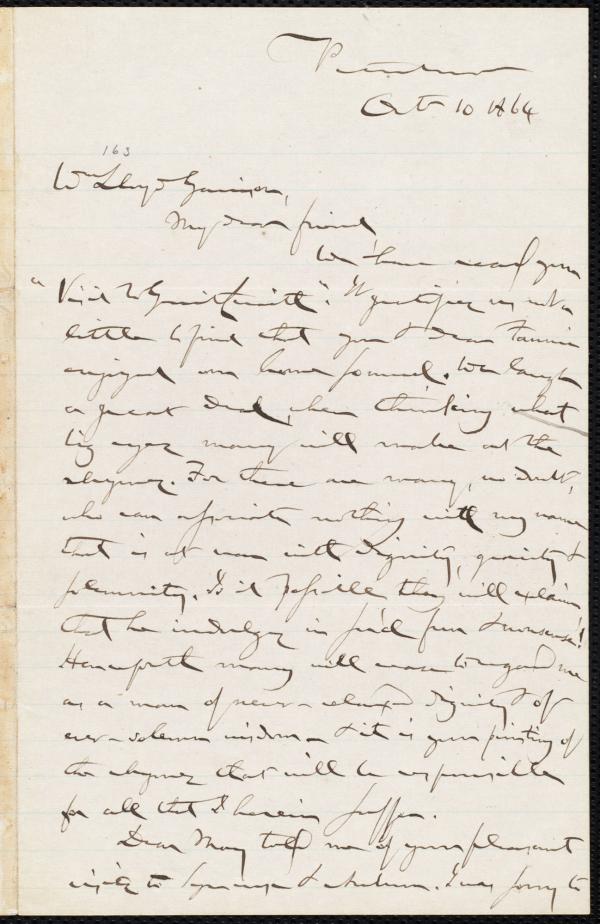 Peterboro
Oct 10 1864
163
Wm Lloyd Garrison,
My dear friend,
We have read your
"Visit to Gerrit Smith". It gratifies us not a
little to find that you & dear Fannie
enjoyed our home so much. We laugh
a great deal, when thinking what
big eyes many will make at the
rhymes. For there are many, no doubt,
who can associate nothing with my name
that is at war with dignity, gravity &
solemnity. Is it possible they will exclaim
that he indulges in such fun & nonsense!
Henceforth many will cease to regard me
as a man of never-relaxed dignity & of
ever-solemn wisdom - & it is your printing of
the rhymes that will be responsible
for all that I herein suffer.
Dear May told me of your pleasant
visits to Syracuse & Auburn. I was sorry to